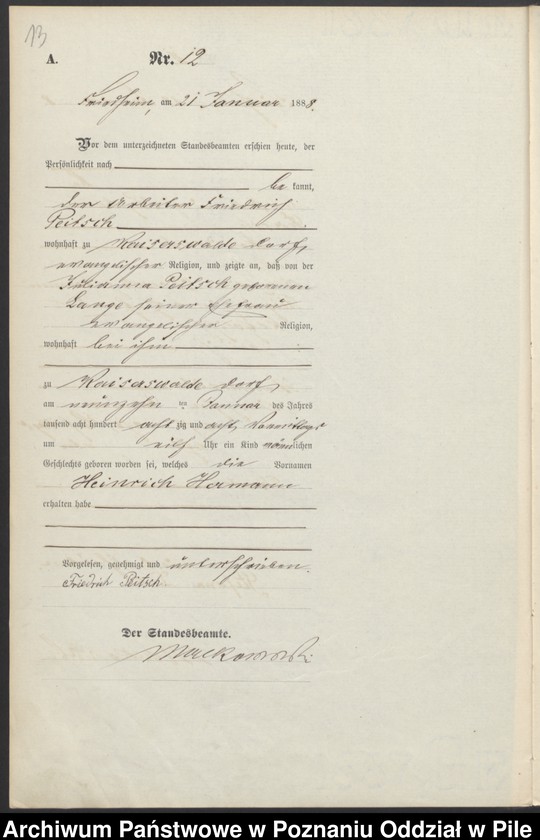 13
A. Nr. 12
Friedheim, am 21 Januar 1888.
Vor dem unterzeichneten Standesbeamten erschien heute, der
Persönlichkeit nach
be kannt,
der Arbeiter Friedrich
Peitsch
wohnhaft zu Kaiserswalde Dorf,
evangelischer Religion, und zeigte an, daß von der
Julianna Peitsch geborenen
Lange seiner Ehefrau
evangelischer Religion,
wohnhaft bei ihm
zu Kaiserswalde Dorf,
am neunzehn ten Januar des Jahres
tausend acht hundert acht zig und acht, Vormittags
um eilf Uhr ein Kind männlichen
Geschlechts geboren worden sei, welches die Vornamen
Heinrich Hermann
erhalten habe
Vorgelesen, genehmigt und unterschrieben.
Friedrich Peitsch
Der Standesbeamte.
Mackowski
Archiwum Państwowe w Poznaniu Oddział w Pile